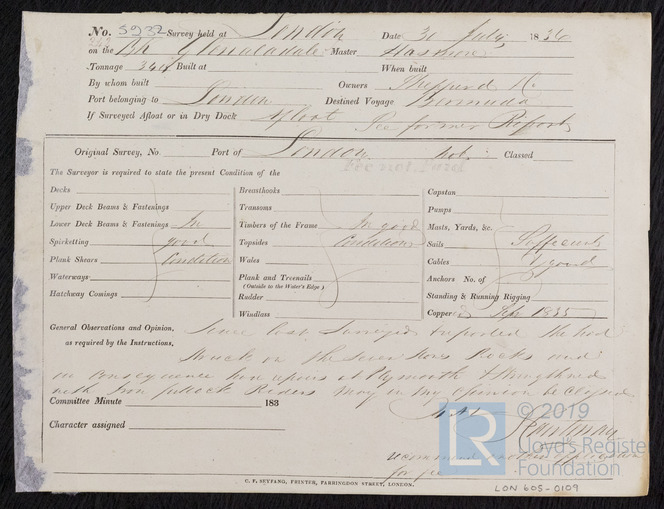 No. 5932 Survey held at London Date 30 July 1836
on the Bk Glenaladale Master
Tonnage Built at When built
By whom built Owners Shepherd &c.
Port belonging to London Destined Voyage Bermuda
If Surveyed Afloat or in Dry Dock Afloat See former Reports
Original Survey, No. Port of London Classed
Fee not Paid
The Surveyor is required to state the present Condition of the
Decks
Upper Deck Beams & Fastenings
Lower Deck Beams & Fastenings In
Spirketting good
Plank Shears Condition
Waterways
Hatchway Comings
Breasthooks
Transoms
Timbers of the Frame In good
Topsides Condition
Wales
Plank and Treenails
(Outside to the Water's Edge)
Rudder
Windlass
Capstan
Pumps
Masts, Yards, &c.
Sails Sufficient
Cables & good
Anchors No. of
Standing & Running Rigging
Copper 1835
General Observations and Opinion, Since last Surveyed reported to have
as required by the Instructions, Struck on the Seven Stones Rocks and
in Consequence had repairs at Plymouth & Strengthened
with Iron Riders may in my Opinion be Classed
Committee Minute 183
Character assigned
recommend
for fee
C. F. SEYFANG, PRINTER, FARRINGDON STREET, LONDON.
LON 605-0109
© 2019
LR
Lloyd's Register
Foundation